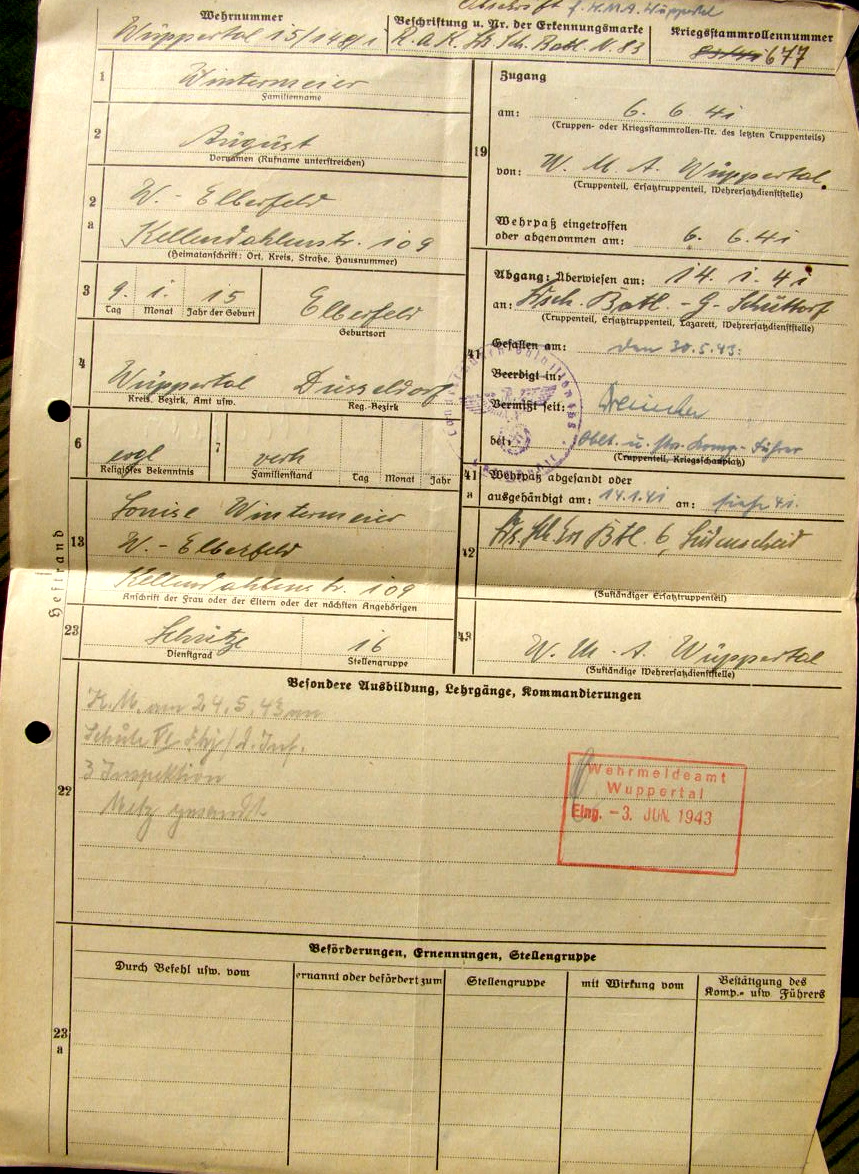 Abschrift f. W.M.A. Wuppertal
Wehrnummer
Wuppertal 15/149/1
Beschriftung u. Nr. der Erkennungsmarke
Sch. Batl. N. 83
Kriegsstammrollennummer
677
1
Wintermeier
Familienname
2
August
Vornamen (Rufname unterstreichen)
2 a
W. - Elberfeld
Kellendahlenstr. 109
(Heimatanschrift: Ort, Kreis, Straße, Hausnummer)
3
9. 1. 15
Tag Monat Jahr der Geburt
Elberfeld
Geburtsort
4
Wuppertal Düsseldorf
Kreis, Bezirk, Amt usw. Reg.-Bezirk
6
evgl
Religiöses Bekenntnis
7
verh
Familienstand Tag Monat Jahr
13
Louise Wintermeier
W. - Elberfeld
Kellendahlenstr. 109
Anschrift der Frau oder der Eltern oder der nächsten Angehörigen
23
Schütze
Dienstgrad
16
Stellengruppe
Heftrand
19
Zugang
am: 6. 6. 41
(Truppen- oder Kriegsstammrollen-Nr. des letzten Truppenteils)
von: W. M. A. Wuppertal.
(Truppenteil, Ersatztruppenteil, Wehrersatzdienststelle)
Wehrpaß eingetroffen
oder abgenommen am: 6. 6. 41
41
Abgang: Überwiesen am: 14. 1. 41
an: Batl - G - Schüttorf
(Truppenteil, Ersatztruppenteil, Lazarett, Wehrersatzdienststelle)
Gefallen am: den 30.5.43.
Beerdigt in:
Vermißt seit:
bei: Oblt. u. Komp. Führer
(Truppenteil, Kriegsschauplatz)
41 a
Wehrpaß abgesandt oder
ausgehändigt am: 14.1.41 an: siehe 41.
42
Btl. 6, Lüdenscheid
(Zuständiger Ersatztruppenteil)
43
W. M. A. Wuppertal
(Zuständige Wehrersatzdienststelle)
Besondere Ausbildung, Lehrgänge, Kommandierungen
22
K. M. am 24.5.43 an
Schule
3 Inspektion
Metz gesandt
Wehrmeldeamt
Wuppertal
Eing. -3. JUN. 1943
Beförderungen, Ernennungen, Stellengruppe
23 a
Durch Befehl usw. vom
ernannt oder befördert zum
Stellengruppe
mit Wirkung vom
Bestätigung des
Komp.- usw Führers